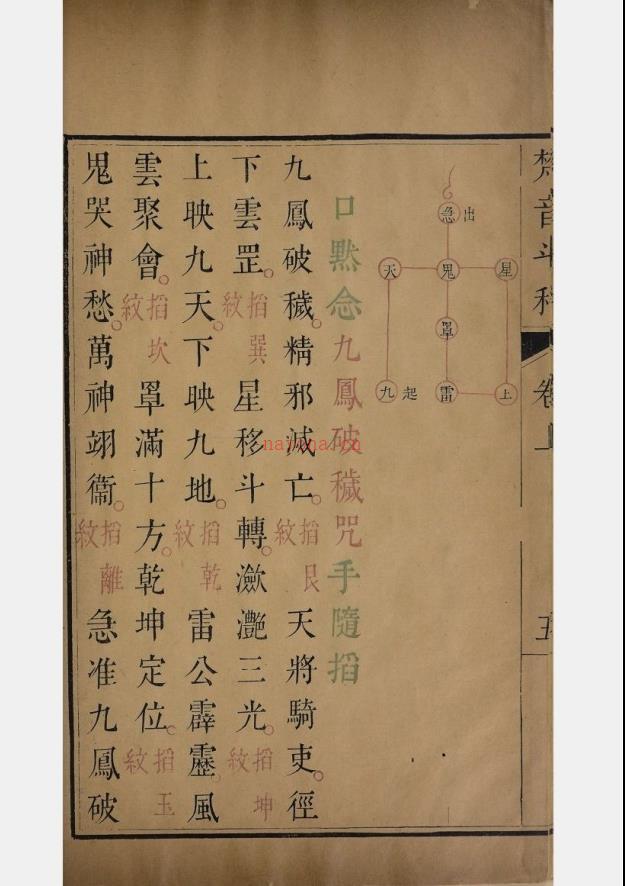 梵音斗科
卷上
五
急 出
天 鬼 星
罩
九 起 雷 上
口黙念九鳳破穢咒手隨搯
九鳳破穢。精邪滅亡。搯艮紋 天將騎吏。徑
下雲罡。搯巽紋 星移斗轉。瀲灧三光。搯坤紋
上映九天。下映九地。搯乾紋 雷公霹靂。風
雲聚會。搯坎紋 罩滿十方。乾坤定位。搯玉紋
鬼哭神愁。萬神翊衞。搯離紋 急准九鳳破